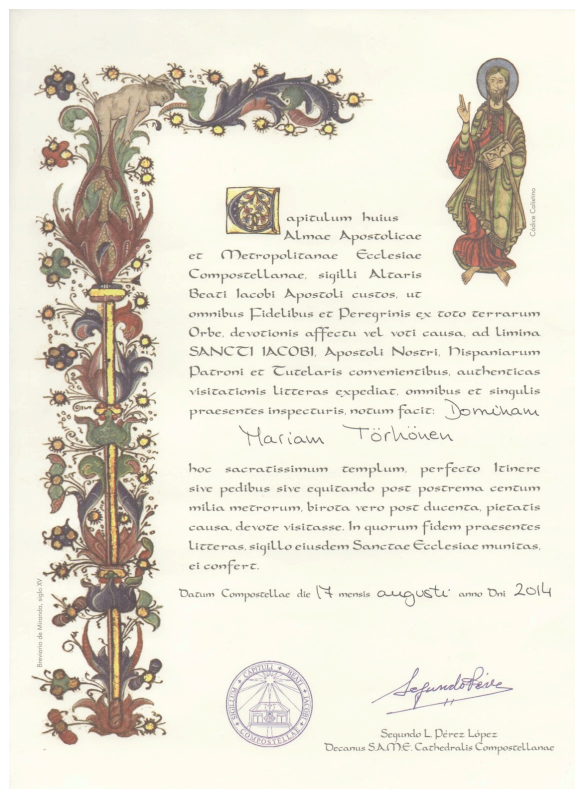 Códice Calixtino
Capitulum huius
Almae Apostolicae
et Metropolitanae Ecclesiae
Compostellanae, sigilli Altaris
Beati Iacobi Apostoli custos, ut
omnibus Fidelibus et Peregrinis ex toto terrarum
Orbe, devotionis affectu vel voti causa, ad limina
SANCTI IACOBI, Apostoli Nostri, Hispaniarum
Patroni et Tutelaris convenientibus, authenticas
visitationis litteras expediat, omnibus et singulis
praesentes inspecturis, notum facit: Dominam
Mariam Törhönen
hoc sacratissimum templum, perfecto Itinere
sive pedibus sive equitando post postrema centum
milia metrorum, birota vero post ducenta, pietatis
causa, devote visitasse. In quorum fidem praesentes
litteras, sigillo eiusdem Sanctae Ecclesiae munitas,
ei confert.
Datum Compostellae die 17 mensis augusti anno Dni 2014
Breviario de Miranda, siglo XV
SIGILLUM CAPITULI BEATI IACOBI COMPOSTELLAE
Segundo Pérez
Segundo L. Pérez López
Decanus S.A.M.E. Cathedralis Compostellanae